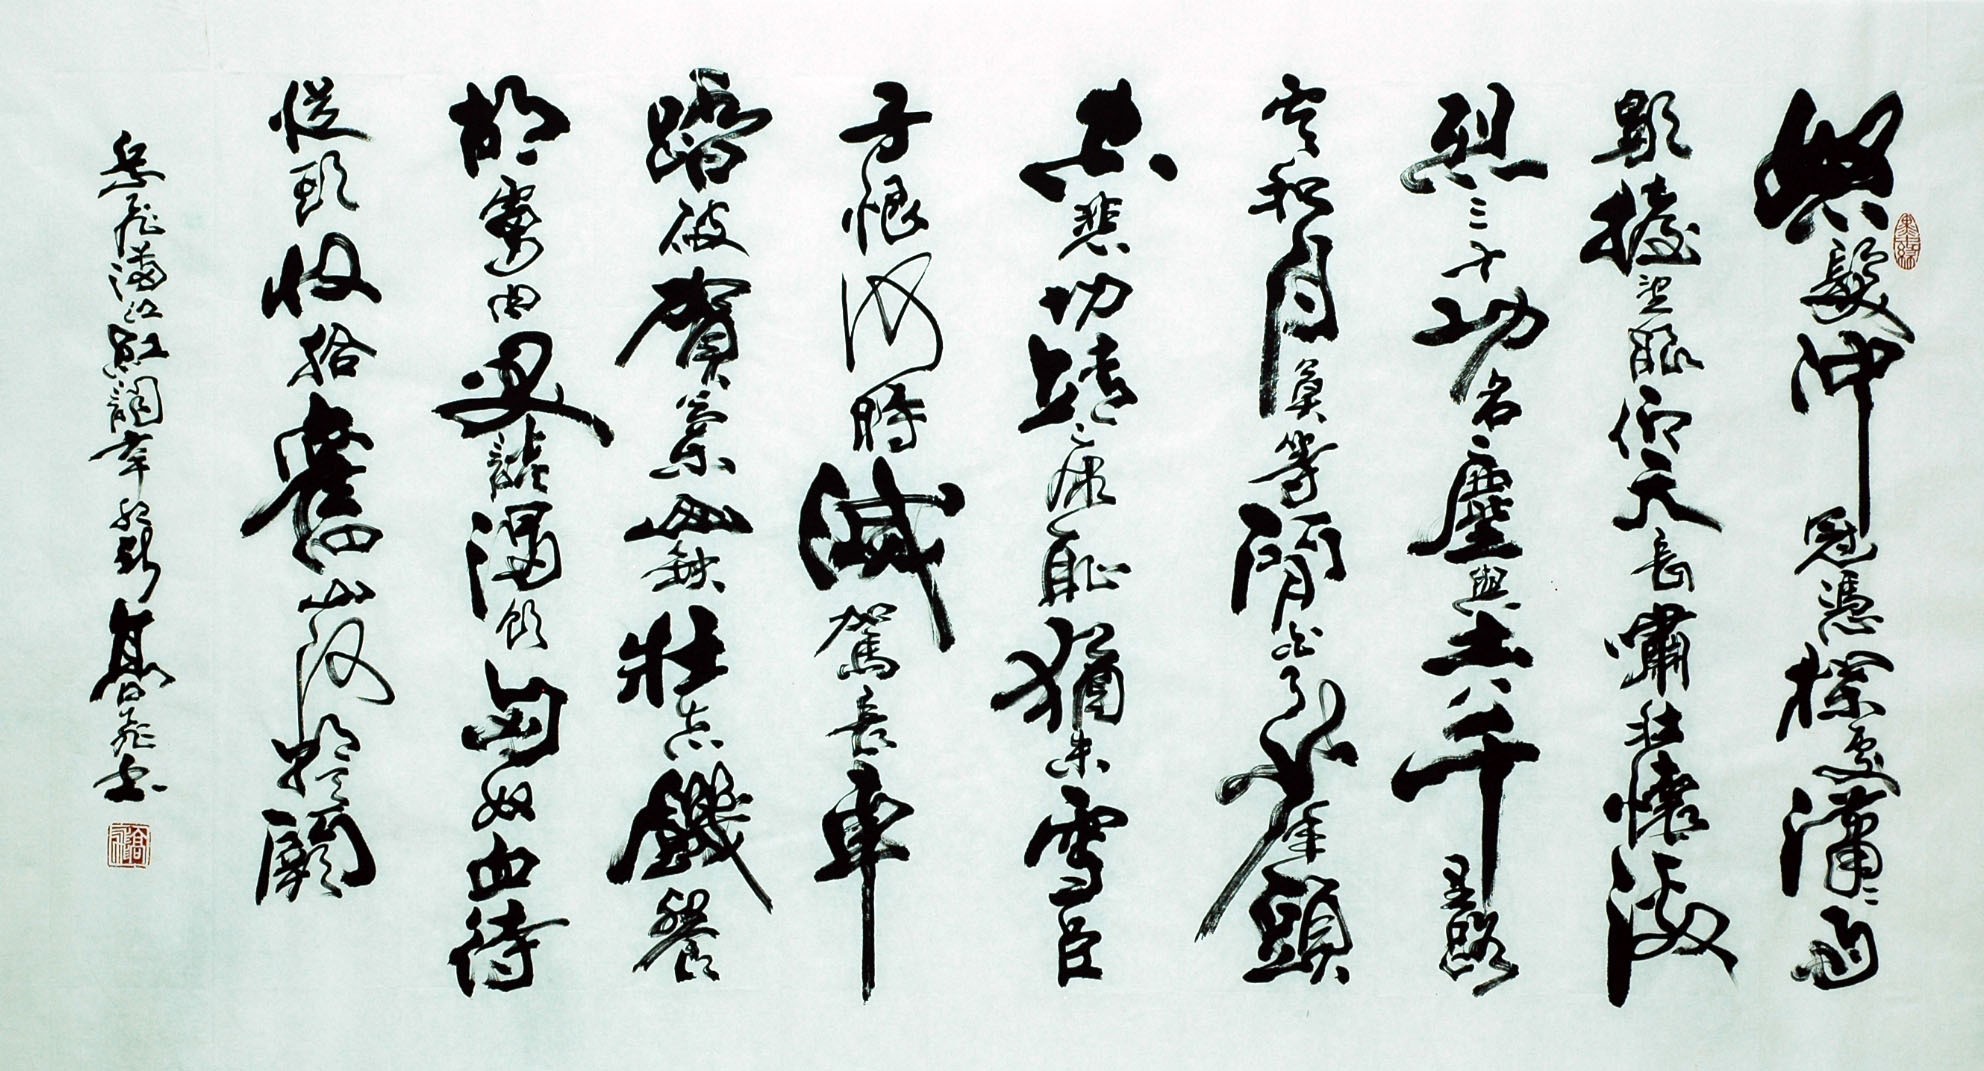 怒髮冲冠憑欄處瀟々雨
歇擡望眼仰天長嘯壯懷激
烈三十功名塵與土八千里路
雲和月莫等閒白了少年頭
空悲切靖康恥猶未雪臣
子恨何時滅駕長車
踏破賀蘭山缺壯志饑餐
胡虜肉笑談渴飲匈奴血待
從頭收拾舊山河朝天闕
岳飛滿江紅詞辛卯高飛書